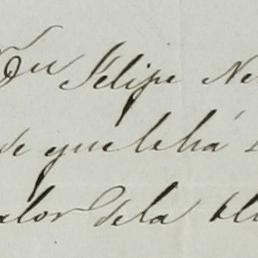 Felipe Ne
de que le há
alor de la